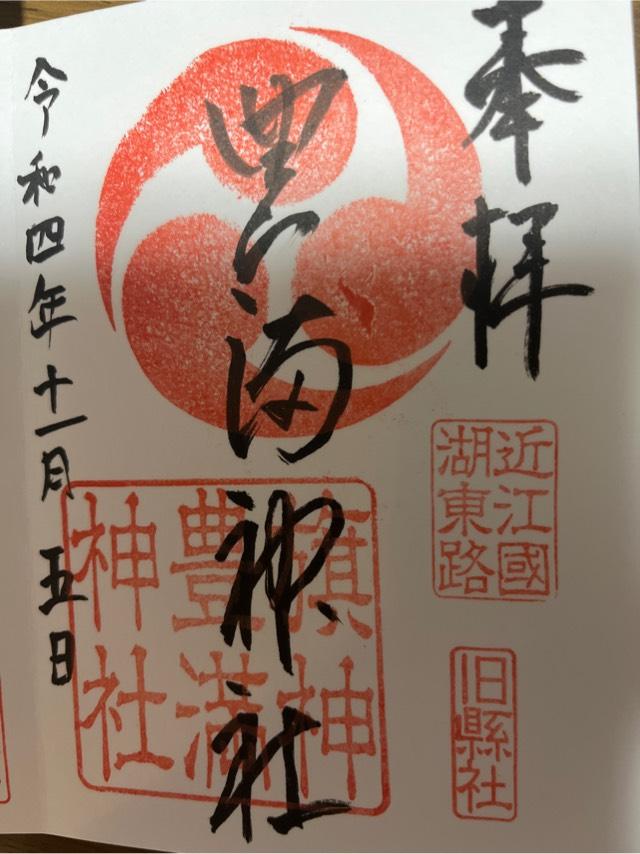 奉拝
近江國
湖東路
旧縣社
豊満神社
旗神
豊満
神社
令和四年十一月五日